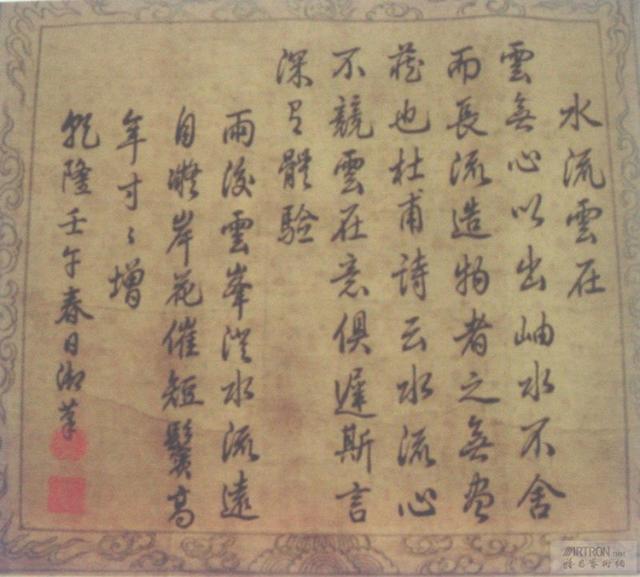 水流雲在
雲無心以出岫水不舍
而長流造物者之無盡
藏也杜甫詩云水流心
不競雲在意俱遲斯言
深有體驗
雨後雲峯澄水流遠
自凝岸花催短鬢高
年寸〻增
乾隆壬午春日御筆
ARTRON